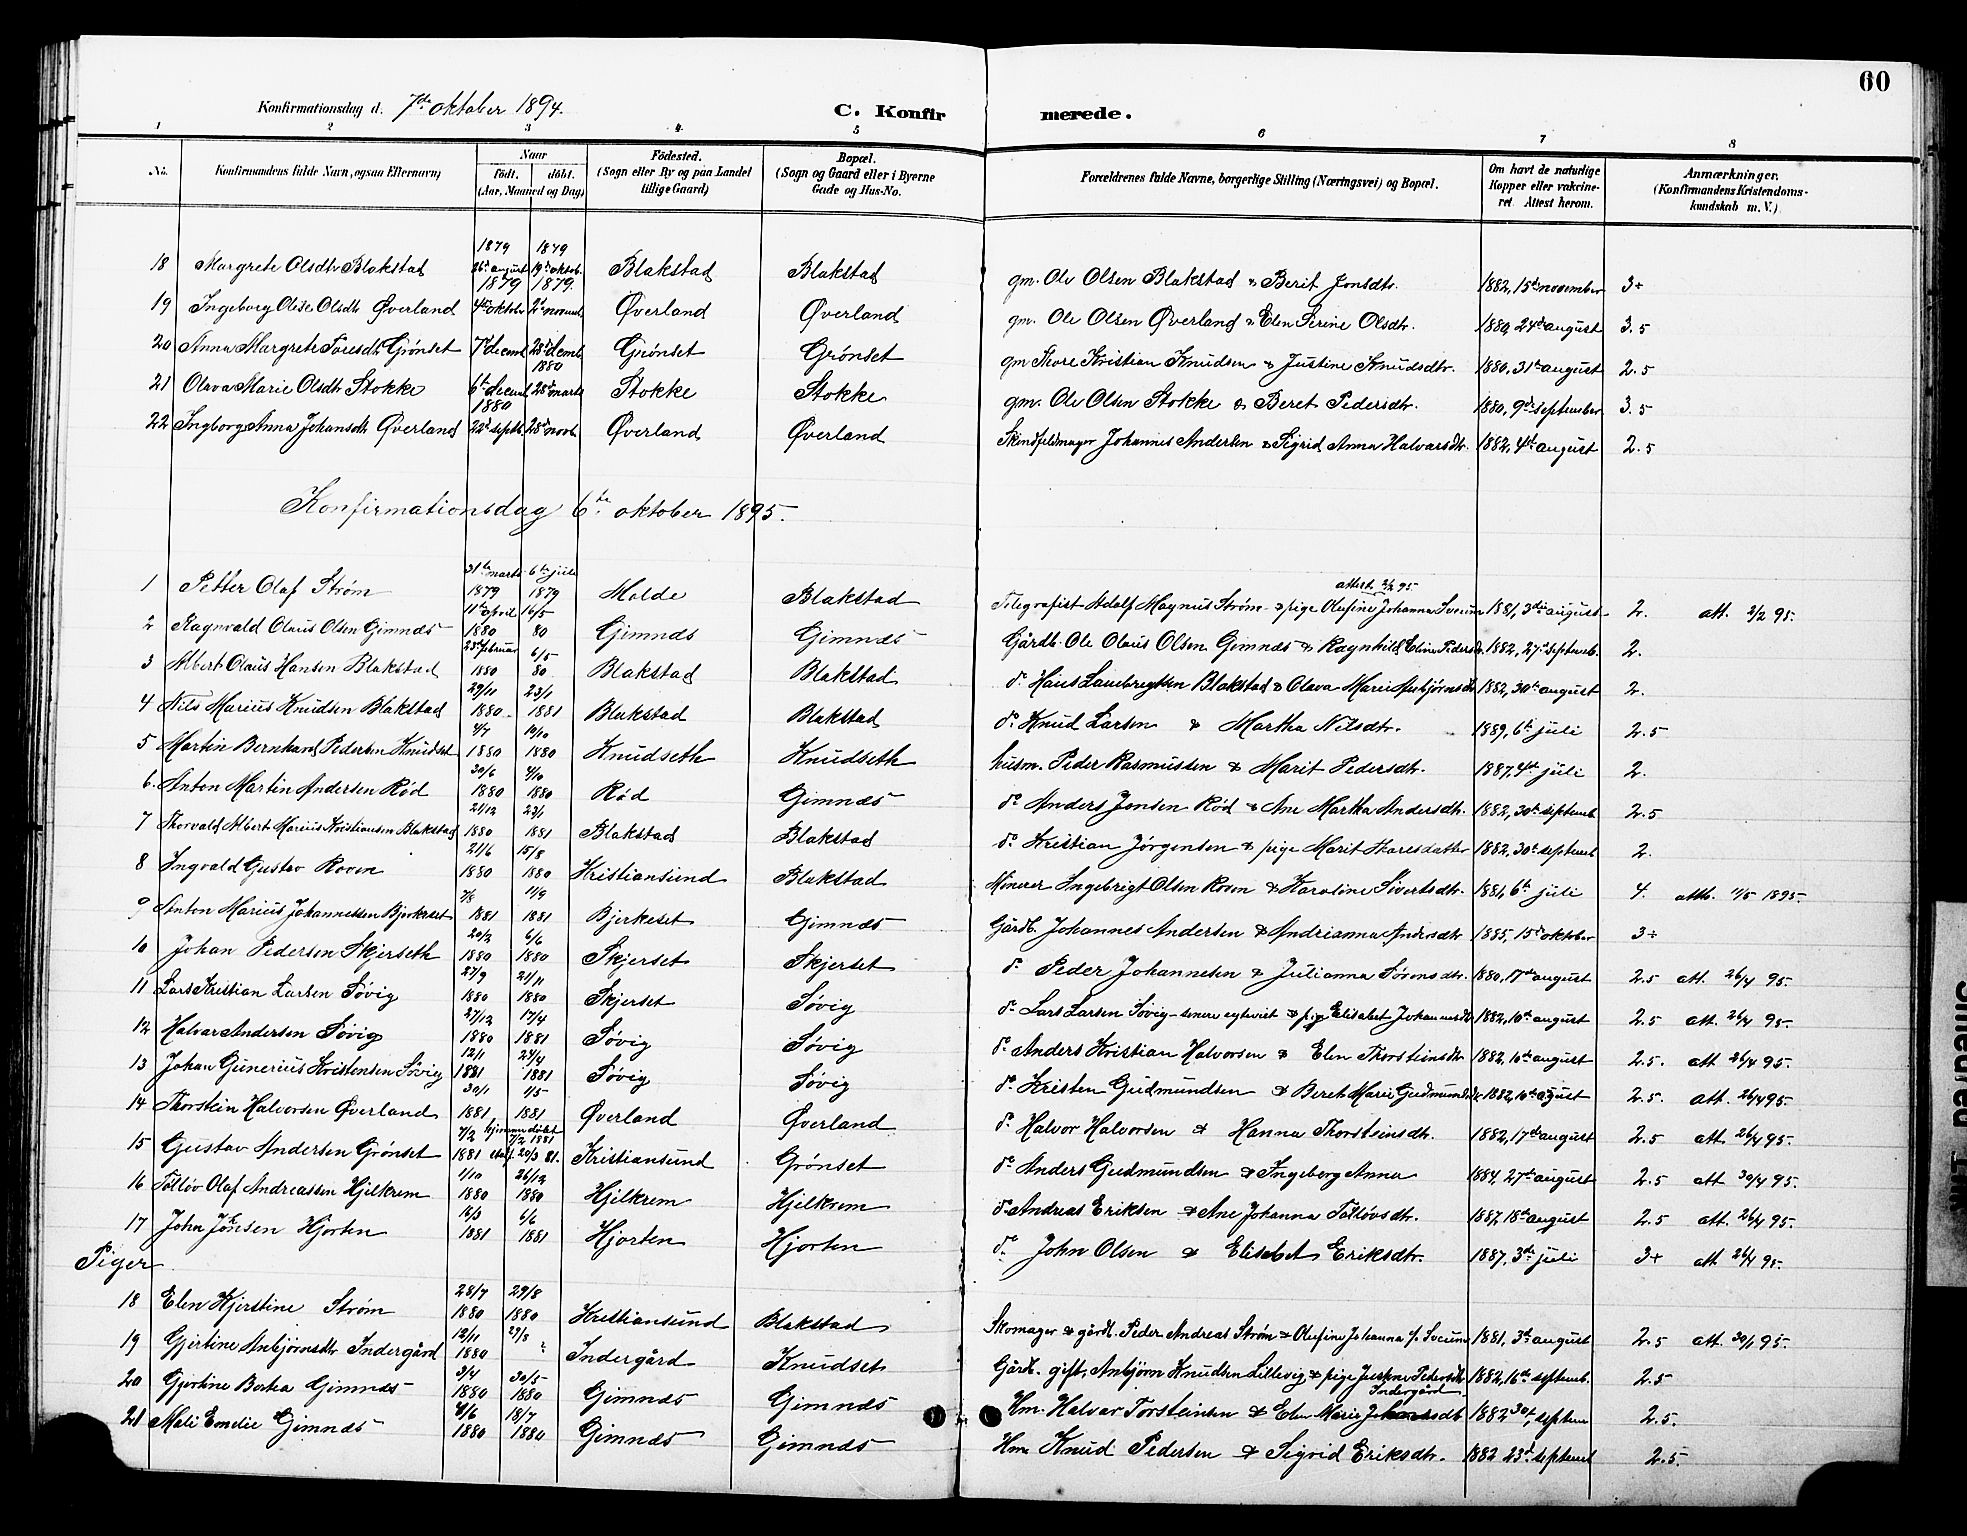 60
Konfirmationsdag d. 7de oktober 1894.
C. Konfirmerede.
1 2 3 4 5 6 7 8
No. Konfirmandens fulde Navn, ogsaa Efternavn) Naar født. døbt. (Aar, Maaned og Dag) Fødested. (Sogn eller By og paa Landet tillige Gaard) Bopæl. (Sogn og Gaard eller i Byerne Gade og Hus-No. Forældrenes fulde Navne, borgerlige Stilling (Næringsvei) og Bopæl. Om havt de naturlige Kopper eller vakcineret. Attest herom. Anmærkninger. (Konfirmandens Kristendomskundskab m. V.)
18 Margrete Olsdtr Blakstad 1879 26de august 1879 19de oktob. Blakstad Blakstad gm. Ole Olsen Blakstad & Berit Jonsdtr. 1882, 15de november 3+
19 Ingeborg Olise Olsdtr Øverland 1879 4de oktober 1879. 2de novemb Øverland Øverland gm. Ole Olsen Øverland & Elen Serine Olsdtr. 1880, 24de august 3.5
20 Anna Margrete Toresdtr Grønset 7de decemb 28de decemb Grønset Grønset gm Thore Kristian Knudsen & Justine Knudsdtr. 1880, 31te august 2.5
21 Olava Marie Olsdtr Stokke 6te decemb 1880 28de marts Stokke Stokke gm. Ole Olsen Stokke & Beret Pedersdtr. 1880, 9de september 3.5
22 Ingborg Anna Johansdtr Øverland 1880 22de septb. 28de novb Øverland Øverland Skindfeldmager Johannes Andersen & Sigrid Anna Halvarsdtr. 1882, 4de august 2.5
Konfirmationsdag 6te oktober 1895.
1 Petter Olaf Strøm 31te marts 1879 6te juli 1879 Molde Blakstad Telegrafist Adolf Magnus Strøm & pige Olufine Johanna attest 2/2 95. 1881, 3die august 2. att. 2/2 95.
2 Ragnvald Olaus Olsen Gimnæs 11te april 1880 16/5 80 Gimnæs Gimnæs Gårdb. Ole Olaus Olsen Gimnæs & Ragnhild Eline Pedersdtr. 1882, 27de septemb. 2.
3 Albert Olaus Hansen Blakstad 23de februar 1880 6/5 80 Blakstad Blakstad do Hans Lambregtsen Blakstad & Olava Marie Anbjørnsdtr 1882, 30te august 2.
4 Nils Marius Knudsen Blakstad 29/11 1880 23/1 1881 Blakstad Blakstad do Knud Larsen & Martha Nilsdtr. 1889, 6te juli 2.5
5 Martin Bernhard Pedersen Knudset 4/7 1880 10/10 1880 Knudseth Knudseth husm. Peder Rasmussen & Marit Pedersdtr. 1887, 4de juli 2.
6 Anton Martin Andersen Rød 30/6 1880 4/10 1880 Rød Gimnæs do Anders Jonsen Rød & Ane Martha Andersdtr. 1882, 30te septemb. 2.5
7 Thorvald Albert Marius Kristiansen Blakstad 21/12 1880 23/1 1881 Blakstad Blakstad do Kristian Jørgensen & pige Marit Haresdatter 1882, 30te septemb 2.
8 Ingvald Gustav Roven 21/6 1880 15/8 1880 Kristiansund Blakstad Minerer Ingebrigt Olsen Roven & Karoline Sivertsdtr. 1881, 6te juli 4. atts. 1/5 1895.
9 Anton Marius Johannessen Bjerkeset 7/8 1881 11/9 1881 Bjerkeset Gimnæs Gårdb. Johannes Andersen & Andrianna Andersdtr 1885, 15de oktober 3+
10 Johan Pedersen Skjerseth 20/2 1880 6/6 1880 Skjerset Skjerset do Peder Johannesen & Julianna Sørensdtr. 1880, 17de august 2.5 att. 26/4 95.
11 Lars Kristian Larsen Søvig 27/9 1880 21/11 1880 Skjerset Søvig do Lars Larsen Søvig - senere egteviet & pige Elisabet Johannesdtr. 1882, 10de august 2.5 att. 26/4 95.
12 Halvar Andersen Søvig 27/12 1880 17/4 1881 Søvig Søvig do Anders Kristian Halvorsen & Elen Thorsteinsdtr. 1882, 10de august 2.5. att. 26/4 95.
13 Johan Gunerius Kristensen Søvig 12/1 1881 23/4 1881 Søvig Søvig do Kristen Gudmundsen & Beret Marie Gudmundsdtr. 1882, 10de august 2.5. att. 26/4 95.
14 Thorstein Halvorsen Øverland 30/1 1881 1/5 1881 Øverland Øverland do Halvor Halvorsen & Hanna Thorsteinsdtr. 1882, 17de august 2.5 att. 26/4 95.
15 Gustav Andersen Grønset 7/2 1881 hjemmedøbt 7/2 1881 stadf. 20/3 81. Kristiansund Grønset do Anders Gudmundsen & Ingeborg Anna 1884, 27de august 2.5 att. 30/4 95.
16 Tolløv Olaf Andreassen Hjelkrem 1/10 1880 26/12 1880 Hjelkrem Hjelkrem do Andreas Eriksen & Ane Johanna Tolløvsdtr. 1887, 18de august 2.5 att. 26/4 95.
17 John Johnsen Hjorten 16/3 1881 6/6 1881 Hjorten Hjorten do John Olsen & Elisabet Eriksdtr. 1887, 3de juli 3+ att. 26/4 95.
Piger
18 Elen Kjerstine Strøm 28/7 1880 29/8 1880 Kristiansund Blakstad Skomager & gårdb. Peder Andreas Strøm & Olufine Johanna 1881, 3de august 2.5 att. 30/1 95.
19 Gjertine Anbjørnsdtr Indergård 12/11 1880 27/8 " Indergård Knudset Gårdb. gift, Anbjørn Knudsen Lillevig & pige Justine Pedersdtr Indergård 1882, 16de septemb. 2.5
20 Gjertine Berta Gimnæs 3/4 1880 30/5 1880 Gimnæs Gimnæs Hm. Halvar Torsteinsen & Elen Marie Johansdtr 1882 30te septem 2.5.
21 Mali Emelie Gimnæs 4/6 1880 18/7 1880 Gimnæs Gimnæs Hm Knud Pedersen & Sigrid Eriksdtr. 1882 23de septemb 2.5.